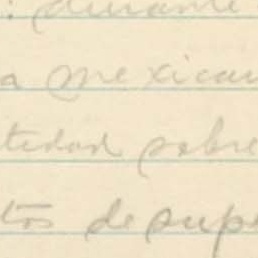 : durante
a mexican
tedad sobre
tos de supe